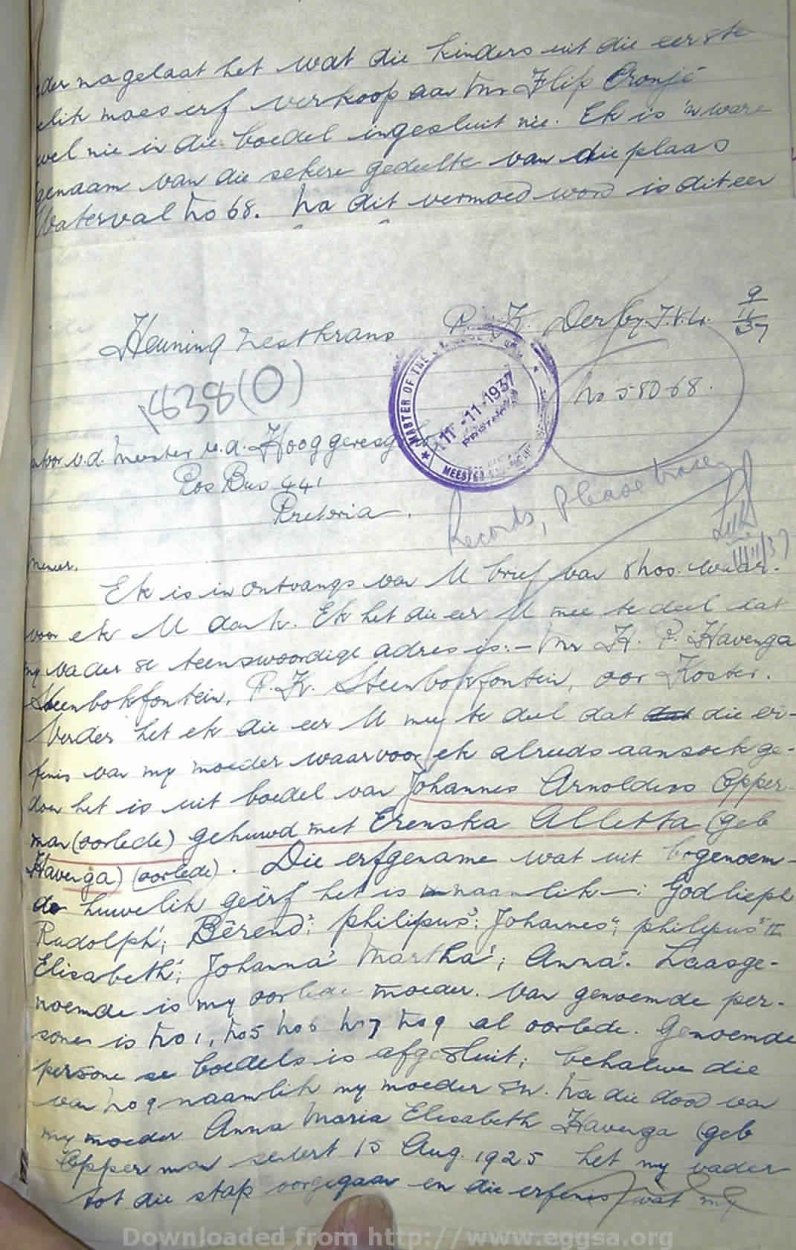 der nagelaat het wat die kinders uit die eerste
elik moes erf verkoop aan Mr Flip Oronje
wel nie in die boedel ingesluit nie. Ek is 'n ware
genaam van die sekere gedeelte van die plaas
Waterval No 68. Na dit vermoed word is dit een
Heuning Nestkrans P. K. Derby. T.V.L. 9/11/37
1838(0)
MASTER OF THE
11-11-1937
PRETORIA
MEESTER
No 580-68.
v.d. Meester v.d. Hooggeregs
Pos Bus 441
Pretoria.
Records, Please trace
11/11/37
Meneer.
Ek is in ontvangs van U brief van waar-
voor ek U dank. Ek het die eer U mee te deel dat
my vader se teenswoordige adres is:- Mr H. P. Havenga
Steenbokfontein, P.K. Steenbokfontein, oor Koster.
Verder het ek die eer U mee te deel dat die er-
fenis van my moeder waarvoor ek alreeds aansoek ge-
doen het is uit boedel van Johannes Arnoldus Opper-
man (oorlede) gehuwd met Erenska Alletta (geb
Havenga) (oorlede). Die erfgename wat uit bogenoem-
de huwelik geërf het is naamlik:- Godlieph
Rudolph; Bêrend; Philipus; Johannes; Philipus II
Elisabeth; Johanna; Martha; Anna. Laasge-
noemde is my oorlede moeder. Van genoemde per-
sone is No 1, No 5 No 6 No 7 No 9 al oorlede. Genoemde
persone se boedels is afgesluit; behalwe die
van No 9 naamlik my moeder sn. Na die dood van
my moeder Anna Maria Elesabeth Havenga (geb
Opperman sedert 15 Aug. 1925 het my vader
tot die stap oorgegaan en die erfenis wat my
Downloaded from http://www.eggsa.org